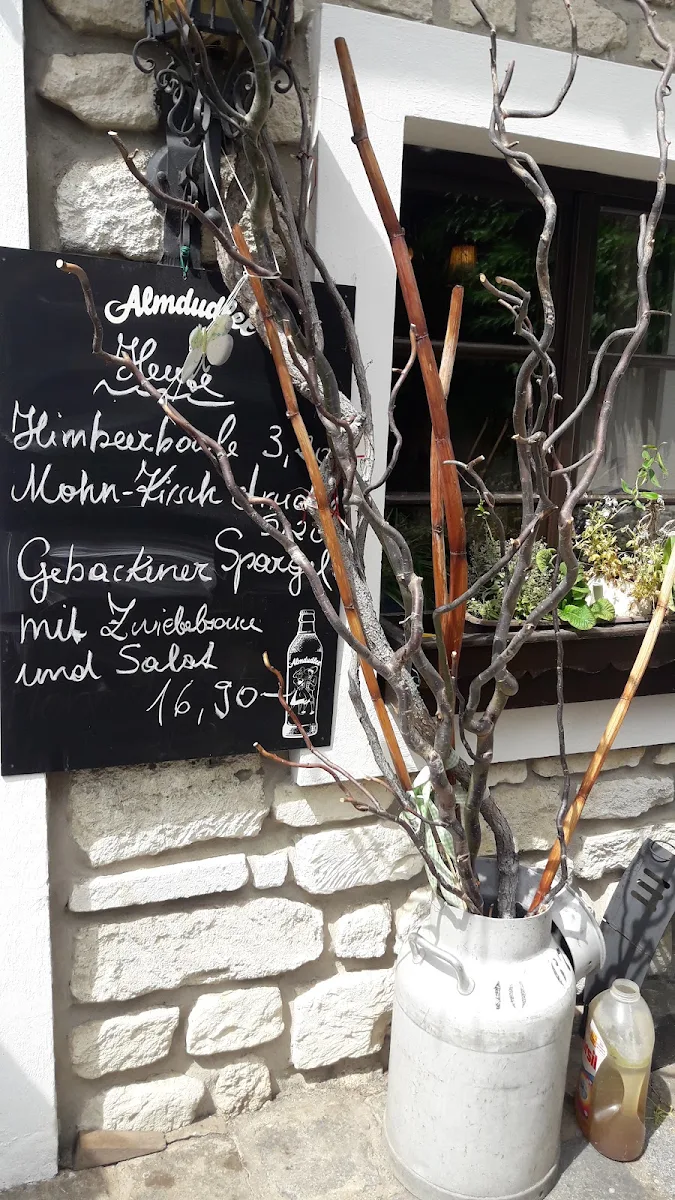 Almdudler
Heute
Himbeerbowle 3,20
Mohn-Kirsch
5,20
Gebackener Spargel
mit Zwiebelsauce
und Salat
16,90
Almdudler